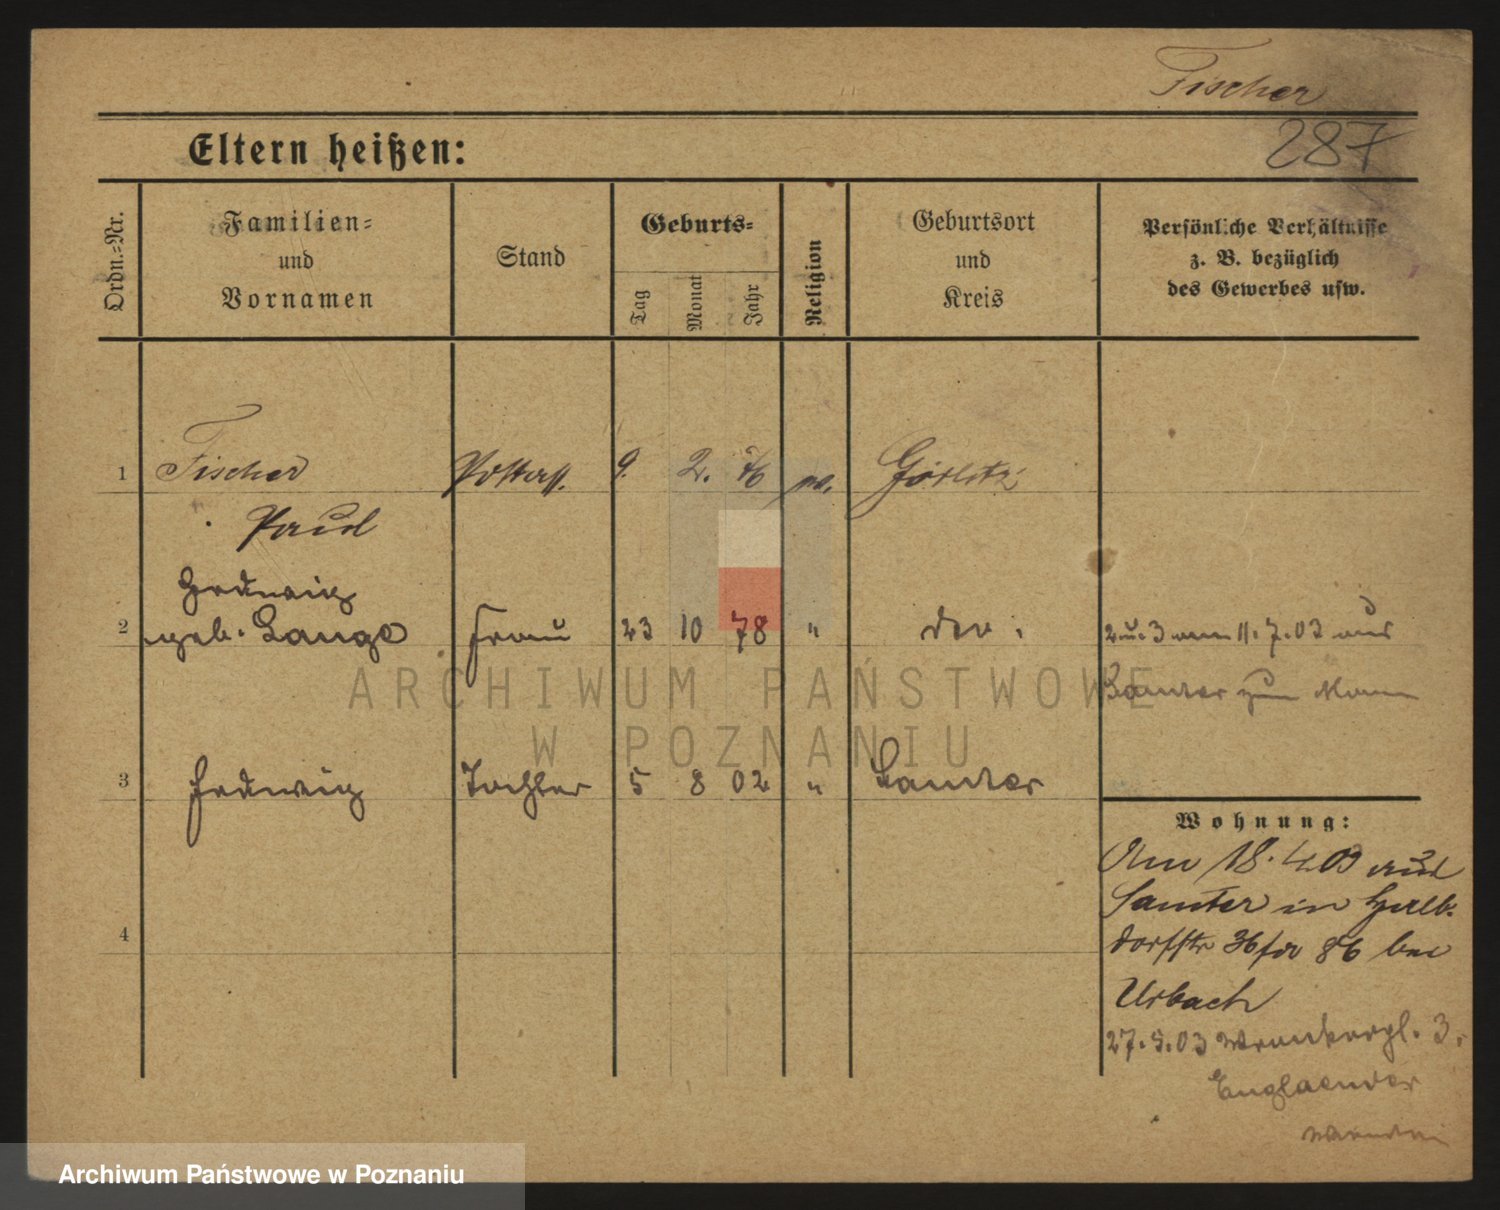 Fischer
287
Eltern heißen:
Ordn.-Nr.
Familien-
und
Vornamen
Stand
Geburts-
Tag
Monat
Jahr
Religion
Geburtsort
und
Kreis
Persönliche Verhältnisse
z. B. bezüglich
des Gewerbes usw.
1 Fischer Postass. 9. 2. 76 Görlitz
Paul
Hedwig
2 geb. Lange Frau 23 10 78 " 2 u. 3 am 11.7.03 aus
Samter zum Mann
3 Hedwig Tochter 5 8 02 " Samter
Wohnung:
Am 18.4.03 aus
Samter in Halb-
dorfstr 36 für 86 bei
Urbach
4
27.5.03 3.
Englaender
ARCHIWUM PAŃSTWOWE
W POZNANIU
Archiwum Państwowe w Poznaniu